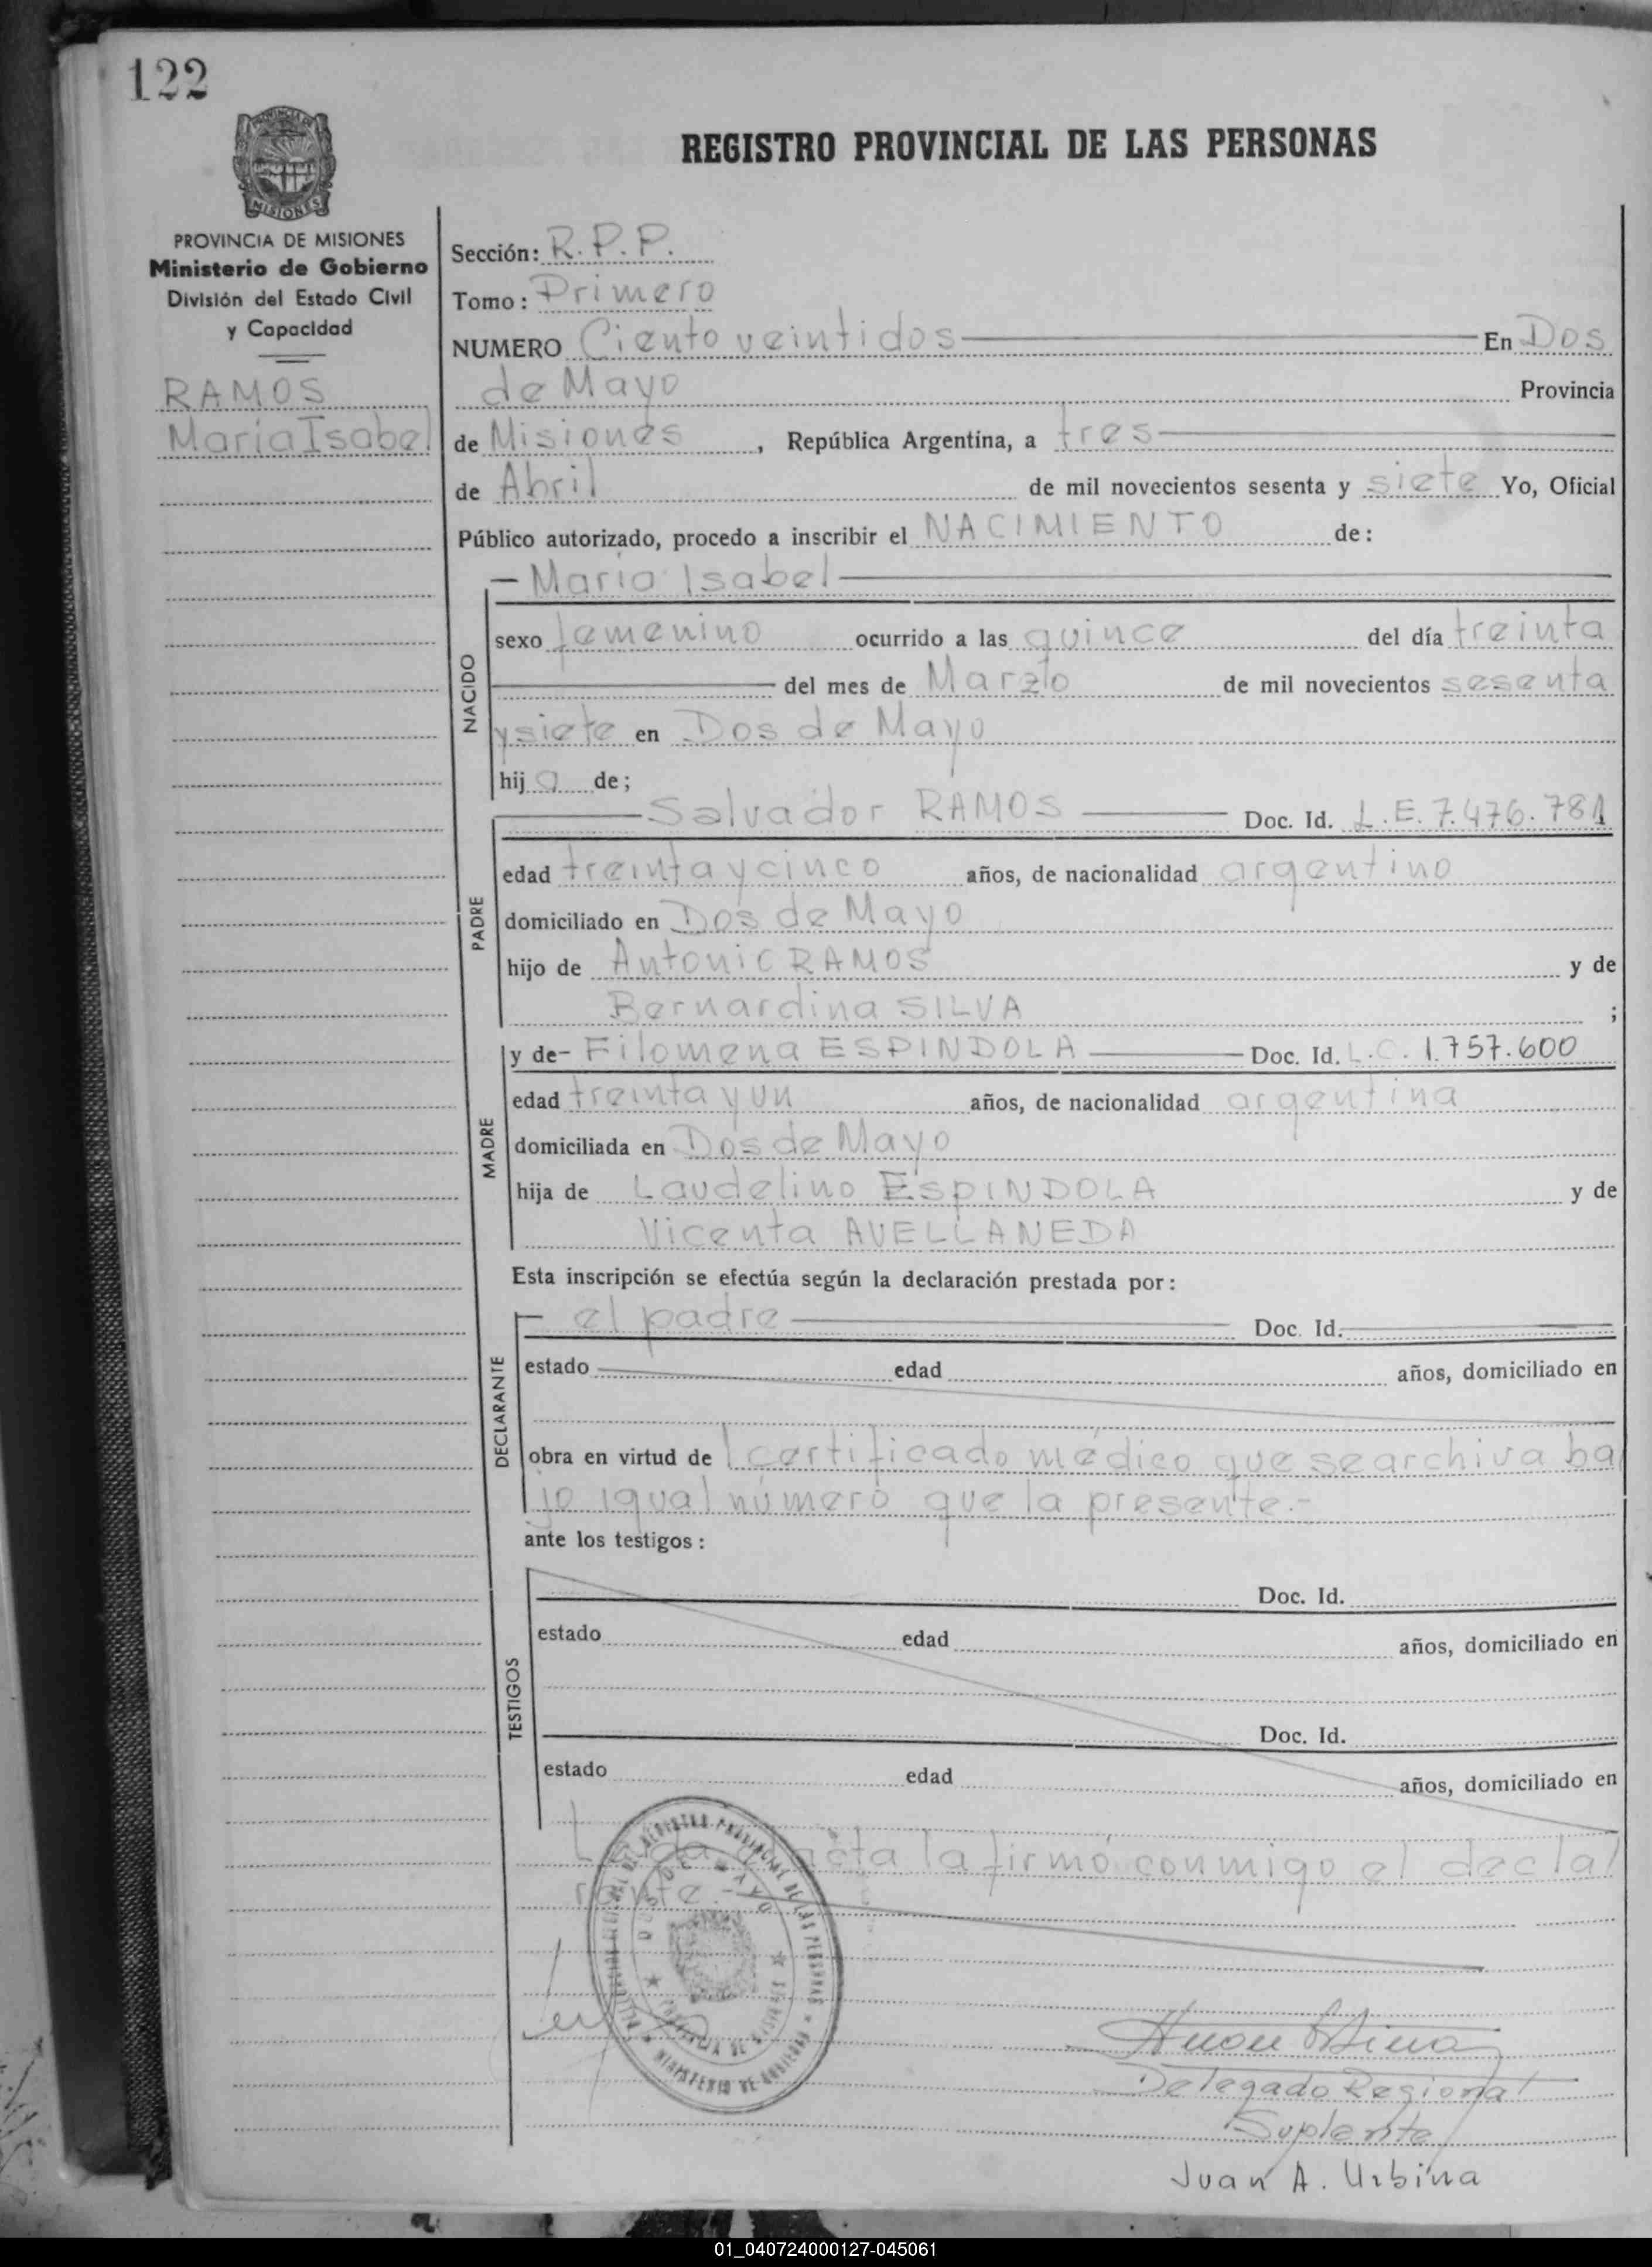 122
REGISTRO PROVINCIAL DE LAS PERSONAS
PROVINCIA DE MISIONES
MISIONES
PROVINCIA DE MISIONES
Ministerio de Gobierno
División del Estado Civil
y Capacidad
RAMOS
María Isabel
Sección: R.P.P.
Tomo: Primero
NUMERO Ciento veintidos En Dos
de Mayo Provincia
de Misiones, República Argentina, a tres
de Abril de mil novecientos sesenta y siete Yo, Oficial
Público autorizado, procedo a inscribir el NACIMIENTO de:
- María Isabel
NACIDO
sexo femenino ocurrido a las quince del día treinta
del mes de Marzo de mil novecientos sesenta
y siete en Dos de Mayo
hij a de;
PADRE
Salvador RAMOS Doc. Id. L.E. 7.476.781
edad treinta y cinco años, de nacionalidad argentino
domiciliado en Dos de Mayo
hijo de Antonio RAMOS y de
Bernardina SILVA ;
MADRE
y de- Filomena ESPINDOLA Doc. Id. L.C. 1.757.600
edad treinta y un años, de nacionalidad argentina
domiciliada en Dos de Mayo
hija de Laudelino ESPINDOLA y de
Vicenta AVELLANEDA
Esta inscripción se efectúa según la declaración prestada por:
DECLARANTE
- el padre Doc. Id.
estado edad años, domiciliado en
obra en virtud de l certificado médico que se archiva ba
jo igual número que la presente.-
ante los testigos:
TESTIGOS
Doc. Id.
estado edad años, domiciliado en
Doc. Id.
estado edad años, domiciliado en
acta la firmó conmigo el decla
rante.-
REGISTRO PROVINCIAL DE LAS PERSONAS
DOS DE MAYO
PROVINCIA DE MISIONES
MINISTERIO DE GOBIERNO
Delegado Regional
Suplente
Juan A. Urbina
01_040724000127-045061